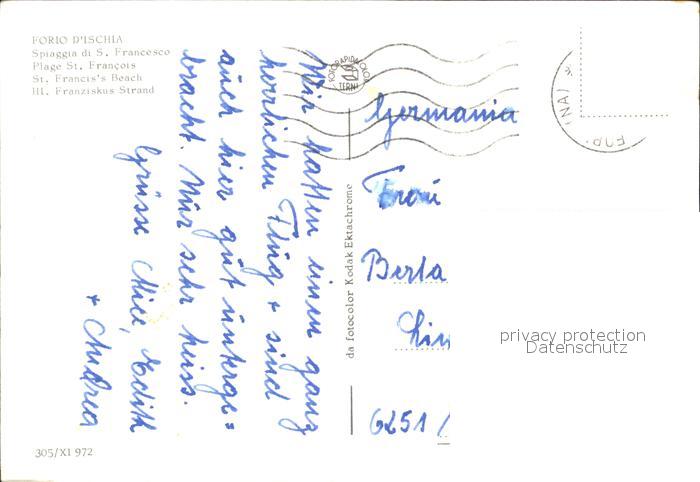 FORIO D'ISCHIA
Spiaggia di S. Francesco
Plage St. François
St. Francis's Beach
Hl. Franziskus Strand
Wir hatten einen ganz
herrlichen Flug + sind
auch hier gut unterge=
bracht. Nur sehr heiss.
Grüsse Edith
+ Andrea
FOTORAPIDACOLOR
TERNI
da fotocolor Kodak Ektachrome
Germania
Frau
Berta
6251
(NA)
privacy protection
Datenschutz
305/XI 972